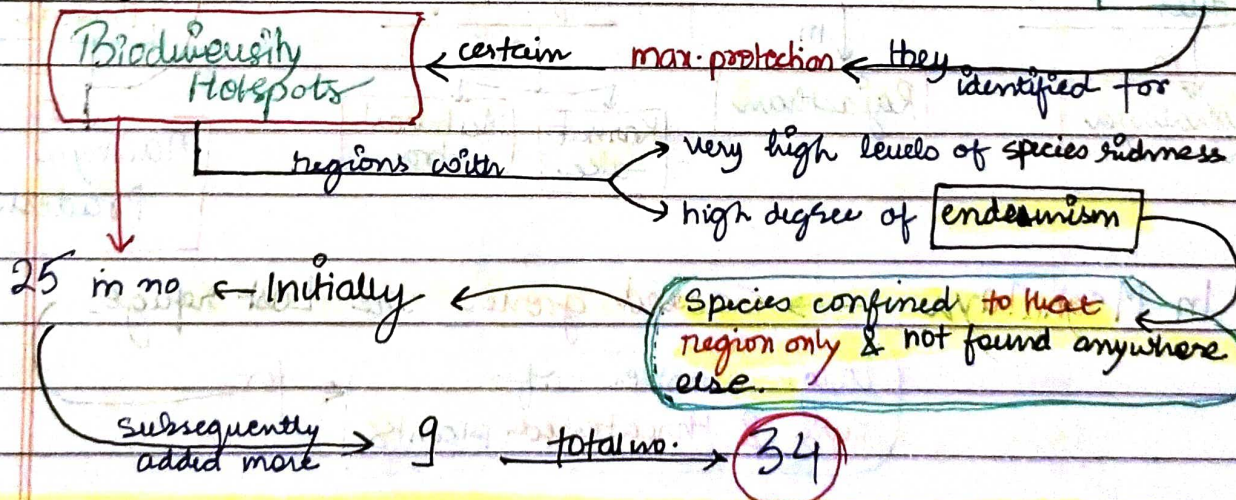 Biodiversity
Hotspots
certain max. protection they
identified for
regions with
very high levels of species richness
high degree of endemism
25 in no Initially
Species confined to that
region only & not found anywhere
else.
subsequently
added more
9 total no. 34